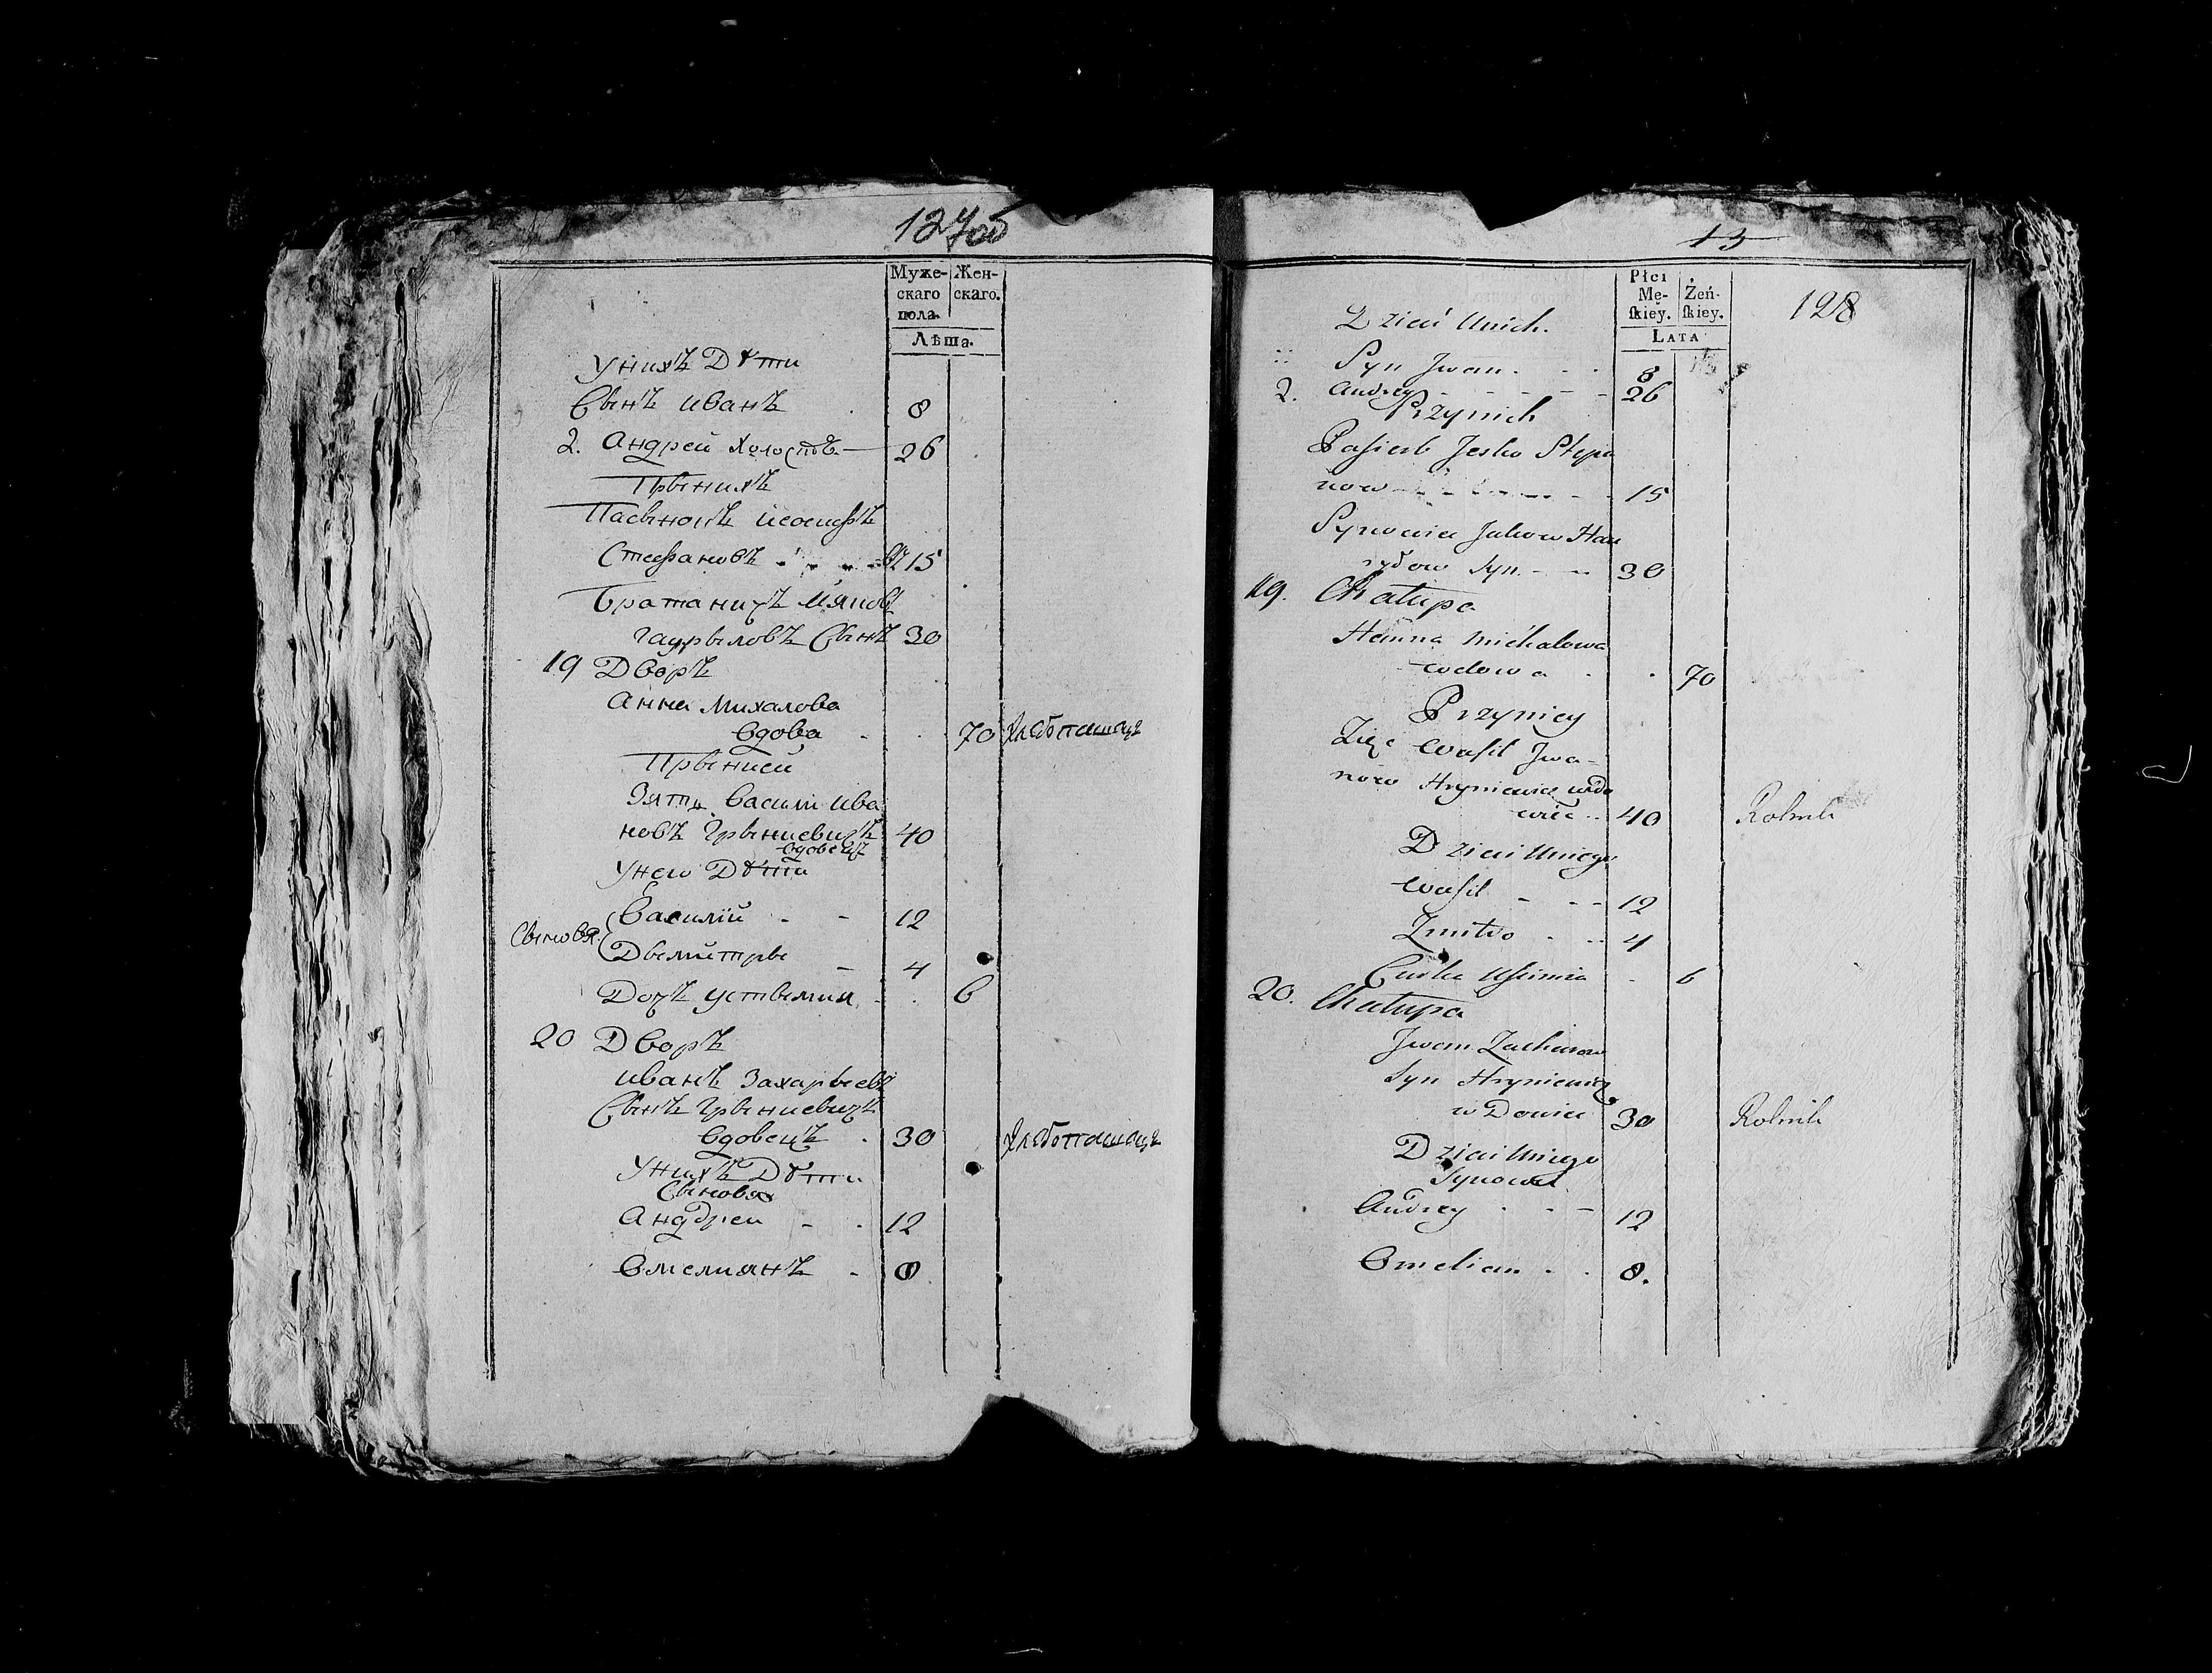 127об
Муже-
скаго
пола.
Жен-
скаго.
Лѣта.
Унихъ Дѣти
Сынъ иванъ 8
2. Андрей холостъ 26
Прынихъ
Пасынокъ иосифъ
Стефановъ 15
Братаничъ Мяков
гаурыловъ Сынъ 30
19 Дворъ
Анна Михалова
вдова 70 Хлѣбопашецъ
Прыници
Зять Васили ива
новъ Грыниевичъ 40
вдовецъ
Унего Дѣти
Сыновя.
Василий - - 12
Дьмитры - 4
Дочъ устымия 6
20 Дворъ
иванъ Захарыевъ
Сынъ Грыниевичъ
вдовецъ 30 Хлѣбопашецъ
Унихъ Дѣти
Сыновя
Андреи - 12
Омелиянъ 8
13
128
Płci
Mę-
skiey.
Żeń-
skiey.
LATA
Dzieci Unich.
Syn Jwan 8
2. Andrey 26
Przynich
Pasierb Jesko Stepa
now 15
Synowiec Jakow Hau
ryłow Syn 30
19. Chatupa
Hanna Michalowa
wdowa 70
Przyniey
Zięc Wasil Jwa-
now Hryniewicz wdo
wiec 40 Rolnik
Dzieci Uniego
Wasil - - - 12
Zmitro - - 4
Curka Ustimia 6
20. Chatupa
Jwan Zacharow
Syn Hryniewicz
wDowiec 30 Rolnik
Dzieci Uniego
Synowie
Andrey - 12
Omelian 8.